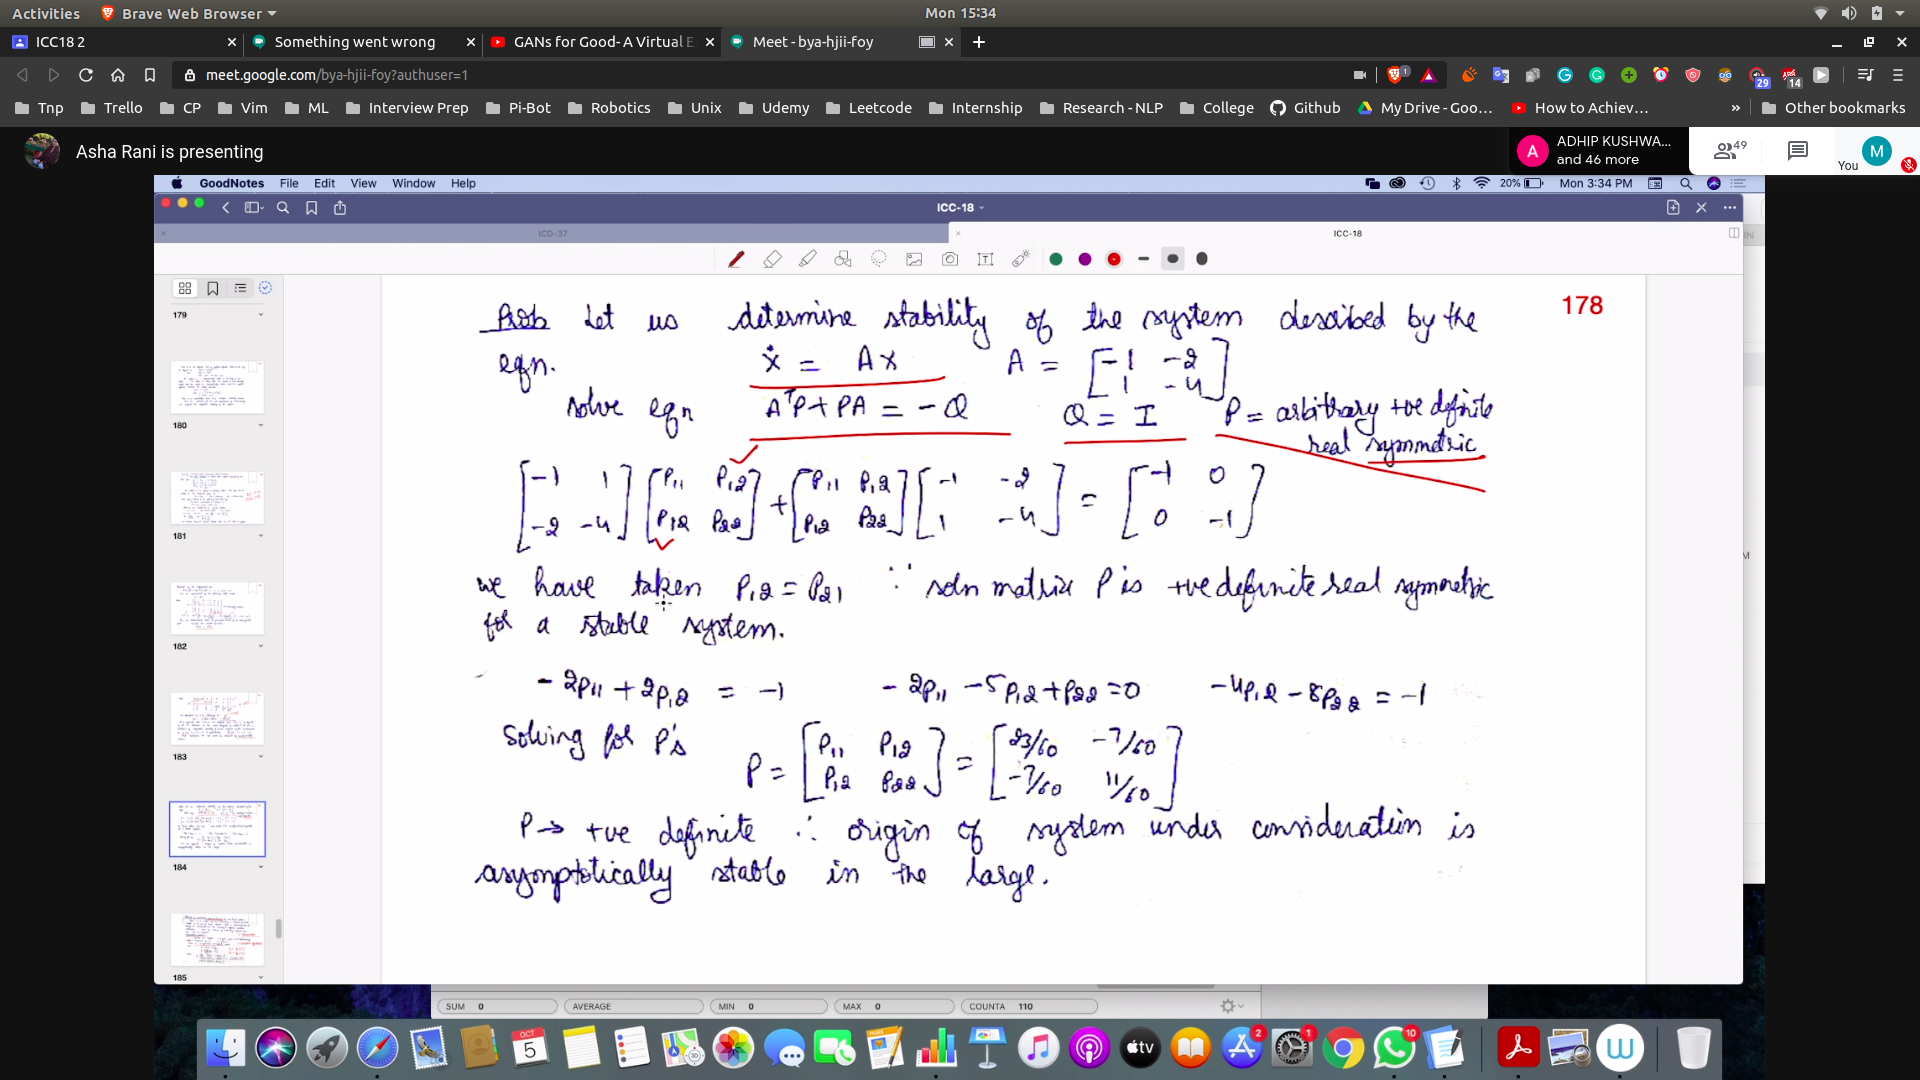 Activities Brave Web Browser Mon 15:34
ICC18 2 Something went wrong GANs for Good- A Virtual E Meet - bya-hjii-foy
meet.google.com/bya-hjii-foy?authuser=1
1 29 14
Tnp Trello CP Vim ML Interview Prep Pi-Bot Robotics Unix Udemy Leetcode Internship Research - NLP College Github My Drive - Goo... How to Achiev... » Other bookmarks
Asha Rani is presenting
A ADHIP KUSHWA... and 46 more 49 You M
GoodNotes File Edit View Window Help 20% Mon 3:34 PM
ICC-18
ICD-37 ICC-18
178
Prob Let us determine stability of the system described by the
eqn. ẋ = Ax A = [-1 -2
1 -4]
solve eqn AᵀP + PA = -Q Q = I P = arbitrary +ve definite
real symmetric
[-1 1 [P11 P12 + [P11 P12 [-1 -2 = [-1 0
-2 -4] P12 P22] P12 P22] 1 -4] 0 -1]
we have taken P12 = P21 ∵ soln matrix P is +ve definite real symmetric
for a stable system.
-2P11 + 2P12 = -1 -2P11 -5P12 + P22 = 0 -4P12 - 8P22 = -1
Solving for P's
P = [P11 P12 = [23/60 -7/60
P12 P22] -7/60 11/60]
P → +ve definite ∴ origin of system under consideration is
asymptotically stable in the large.
179
180
181
182
183
184
185
SUM 0 AVERAGE MIN 0 MAX 0 COUNTA 110
OCT 5 PAGES tv 2 1 10